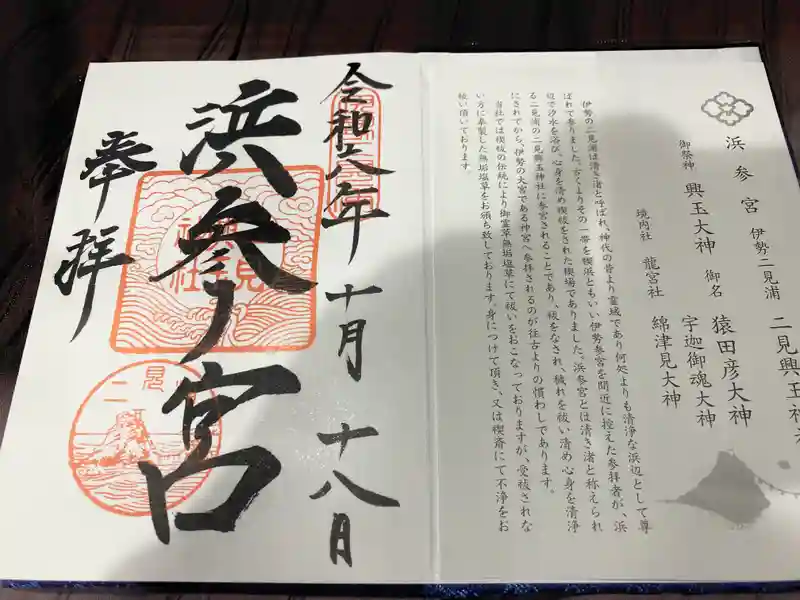 浜参宮 伊勢二見浦 二見興玉神
御祭神 興玉大神 御名 猿田彦大神
宇迦御魂大神
境内社 龍宮社 綿津見大神
伊勢の二見浦は清き渚と呼ばれ、神代の昔より霊域であり何処よりも清浄な浜辺として尊
ばれて参りました。古くよりその一帯を禊浜ともいい伊勢参宮を間近に控えた参拝者が、浜
辺で汐水を浴び、心身を清め禊祓をされた禊場でありました。浜参宮とは清き渚と称えられ
る二見浦の二見興玉神社に参宮されることであり、祓をなされ、穢れを祓い清め心身を清浄
にされてから、伊勢の大宮である神宮へ参拝されるのが往古よりの慣わしであります。
当社では禊祓の伝統により御霊草無垢塩草にて祓いをおこなっておりますが、受祓されな
い方に奉製した無垢塩草をお頒ち致しております。身につけて頂き、又は禊斎にて不浄をお
祓い頂いております。
令和六年 十月 十八日
浜参宮
奉拝
二見